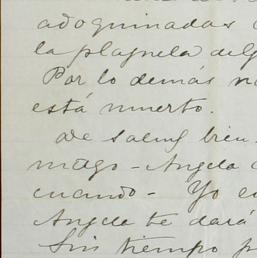 adoquinadas
la plazuela
Por lo demás
está muerto.
de salud bien
mago - Angela
cuando - Yo
Angela te dará
Sin tiempo